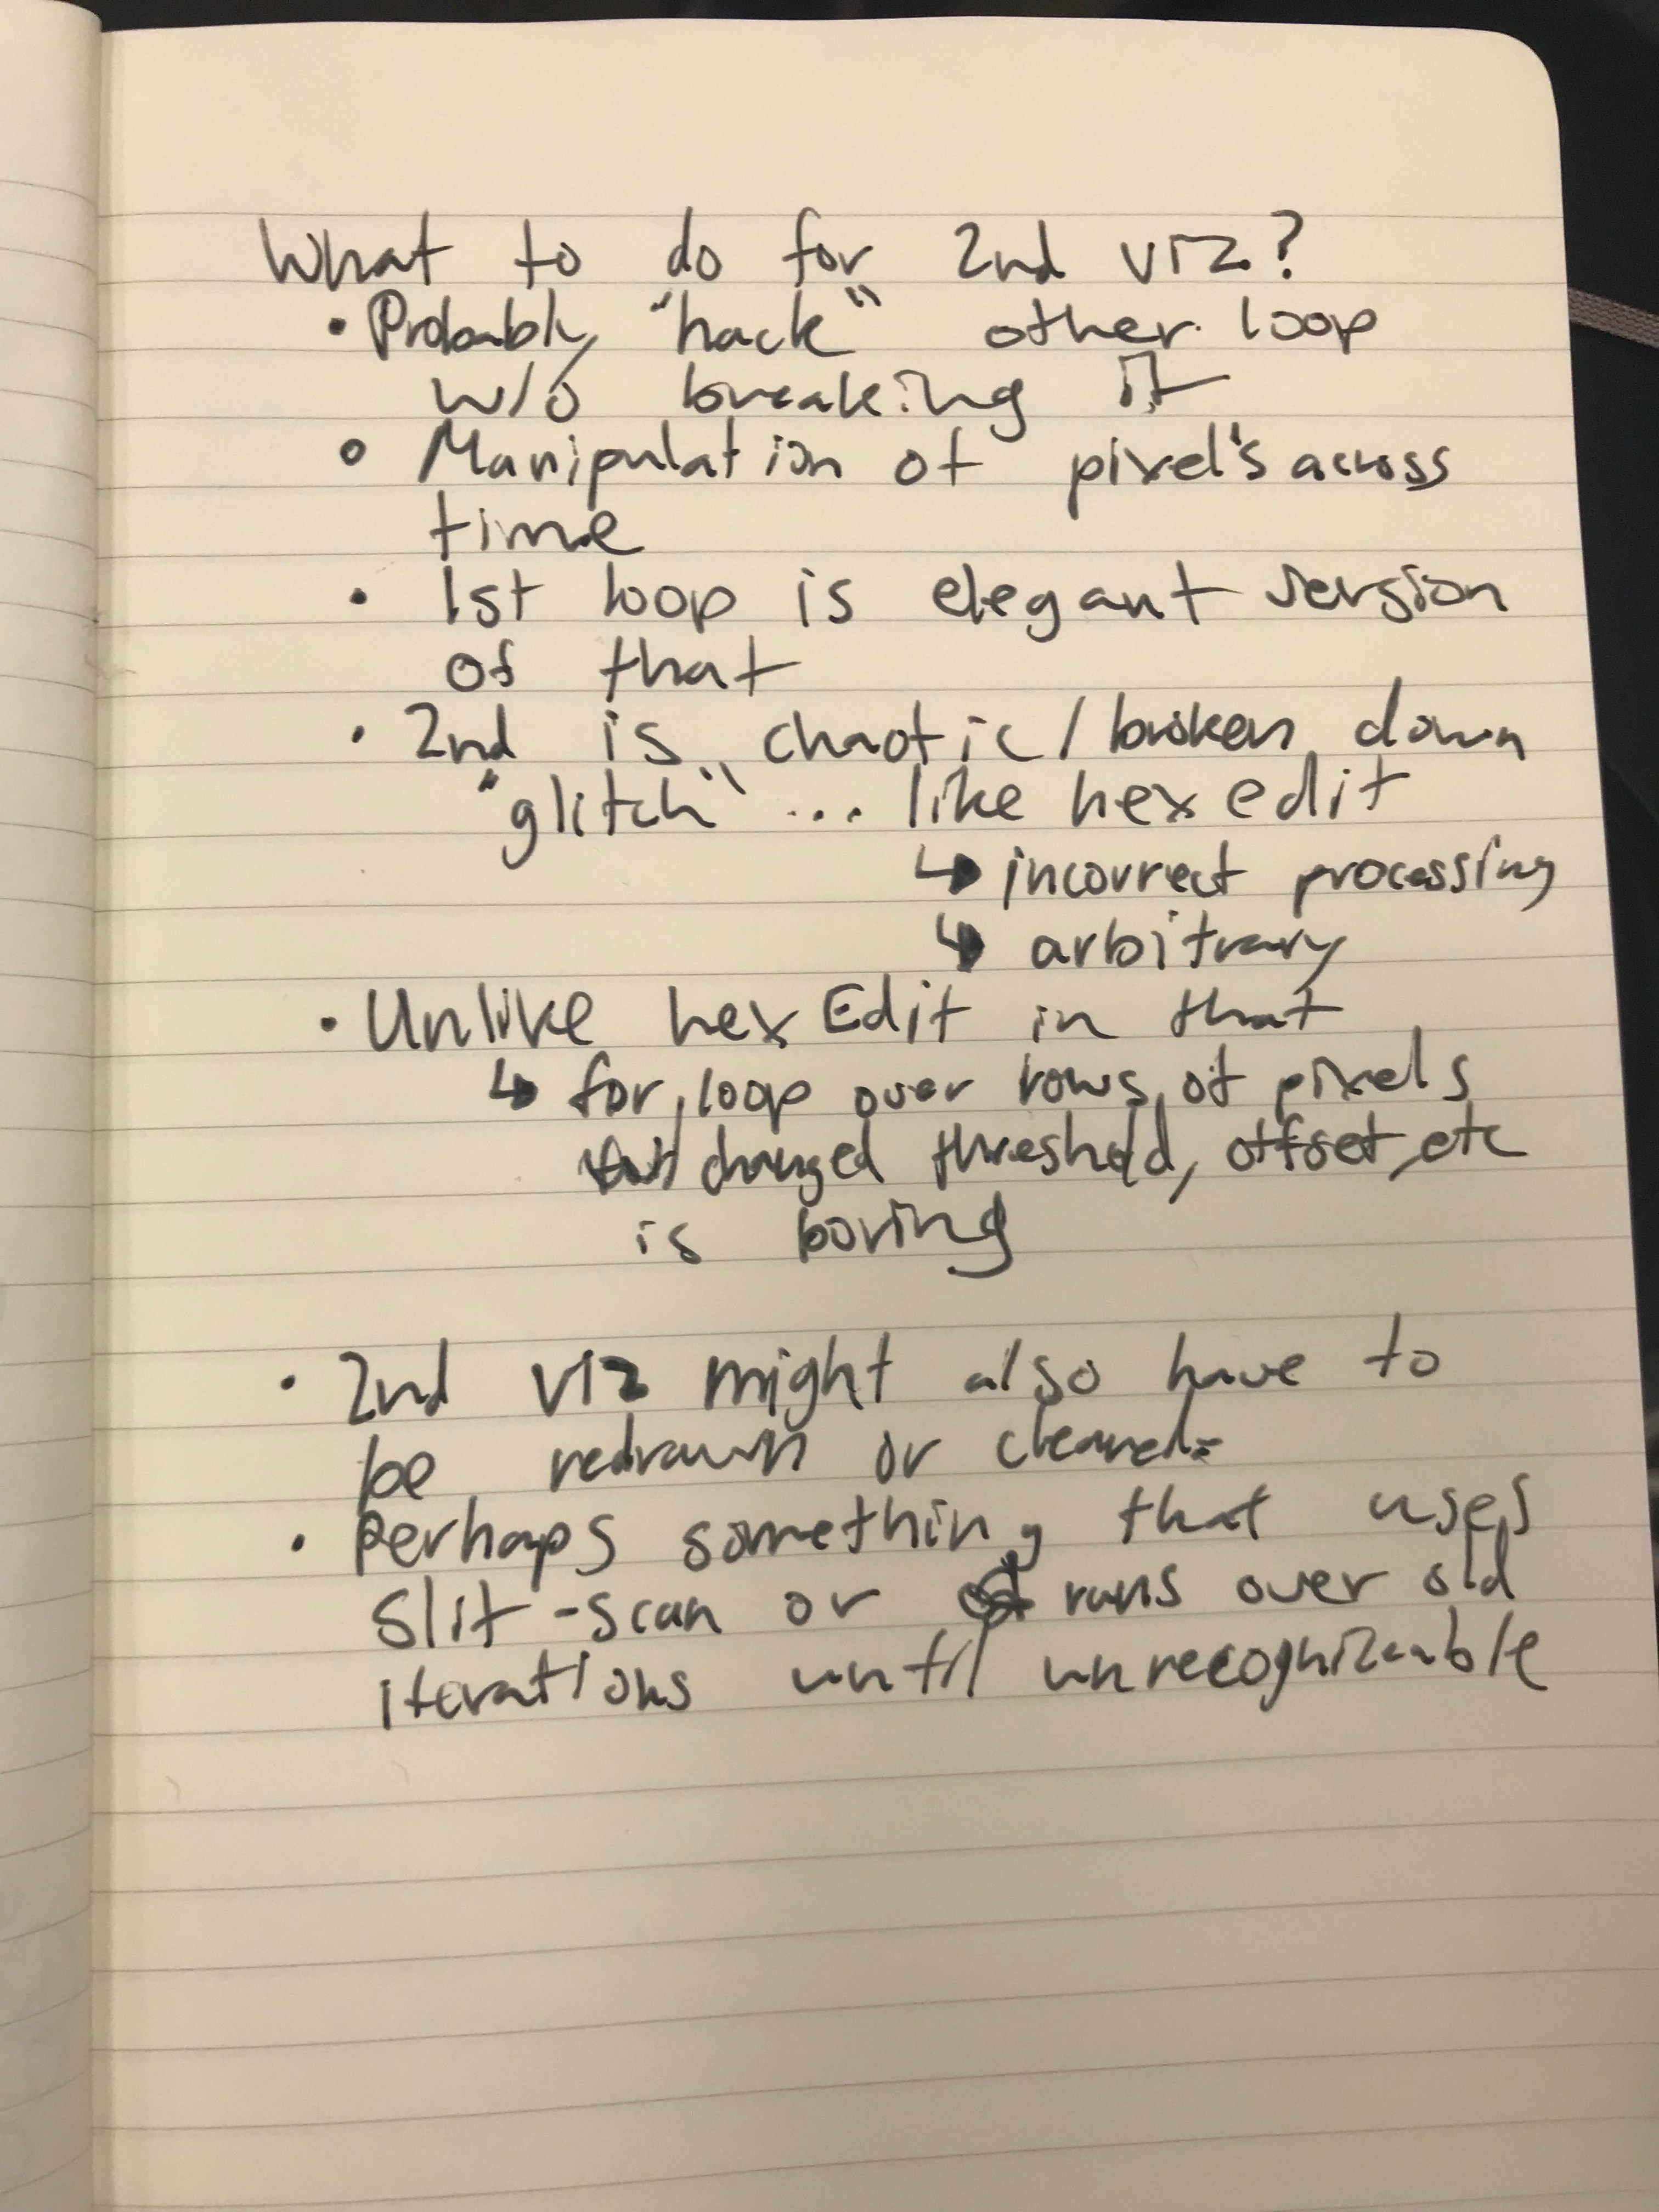 What to do for 2nd viz?
• Probably "hack" other loop
w/o breaking it
• Manipulation of pixel's across
time
• 1st loop is elegant version
of that
• 2nd is chaotic/broken down
"glitch" ... like hex edit
↳ incorrect processing
↳ arbitrary
• Unlike hex Edit in that
↳ for loop over rows of pixels
w/ changed threshold, offset, etc
is boring
• 2nd viz might also have to
be redrawn or cleared.
• Perhaps something that uses
slit-scan or runs over old
iterations until unrecognizeable